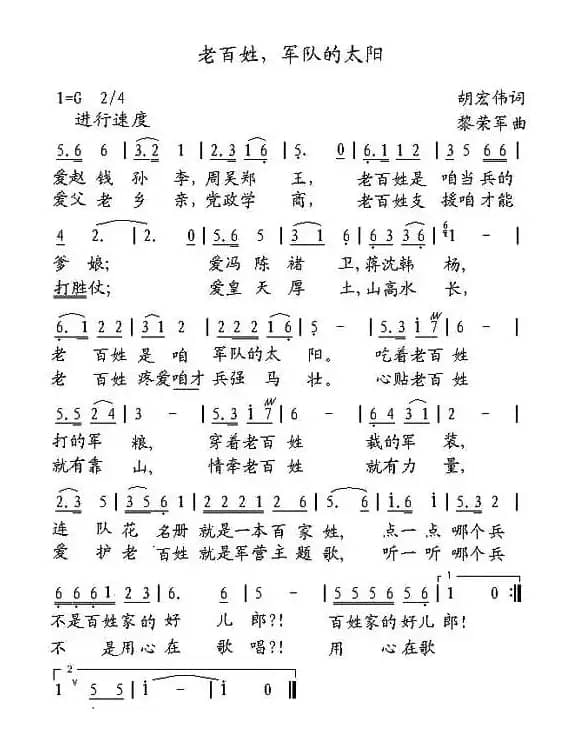 老百姓，军队的太阳
1=G 2/4
胡宏伟词
进行速度
黎荣军曲
5.6 6 | 3.2 1 | 2.3 1 6 | 5. 0 | 6.1 1 2 | 3 5 6 6 |
爱赵 钱 孙 李,周吴郑 王, 老百姓是 咱当兵的
爱父 老 乡 亲,党政学 商, 老百姓支 援咱才能
4 2. | 2. 0 | 5.6 5 | 3 1 6 | 6.3 3 6 | 1 - |
爹 娘; 爱冯 陈 褚 卫,蒋沈韩 杨,
打胜仗; 爱皇 天 厚 土,山高水 长,
6. 1 2 2 | 3 1 2 | 2 2 2 1 6 | 5 - | 5.3 1 7 |
老 百姓 是 咱 军队的太 阳。 吃着老百 姓
老 百姓 疼爱咱才 兵强 马 壮。 心贴老百 姓
5.5 2 4 | 3 - | 5.3 1 7 | 6 - | 6 4 3 1 | 2 - |
打的军 粮, 穿着老百 姓 裁的军 装,
就有靠 山, 情牵老百 姓 就有力 量,
2.3 5 | 3 5 6 1 | 2 2 2 1 2 | 5. 5 | 1.6 1 | 5.3 2 |
连 队 花 名册 就是一本百 家 姓, 点一点 哪个兵
爱 护 老 百姓 就是军营主 题 歌, 听一听 哪个兵
6 6 6 1 2 3 | 6. 6 | 5 - | 5 5 5 6 5 6 | 1 0 :||
不是百姓家的 好 儿 郎?! 百姓家的好儿郎!
不 是用心在 歌 唱?! 用 心在歌
1 5 5 | 1 - | 1 0 ||